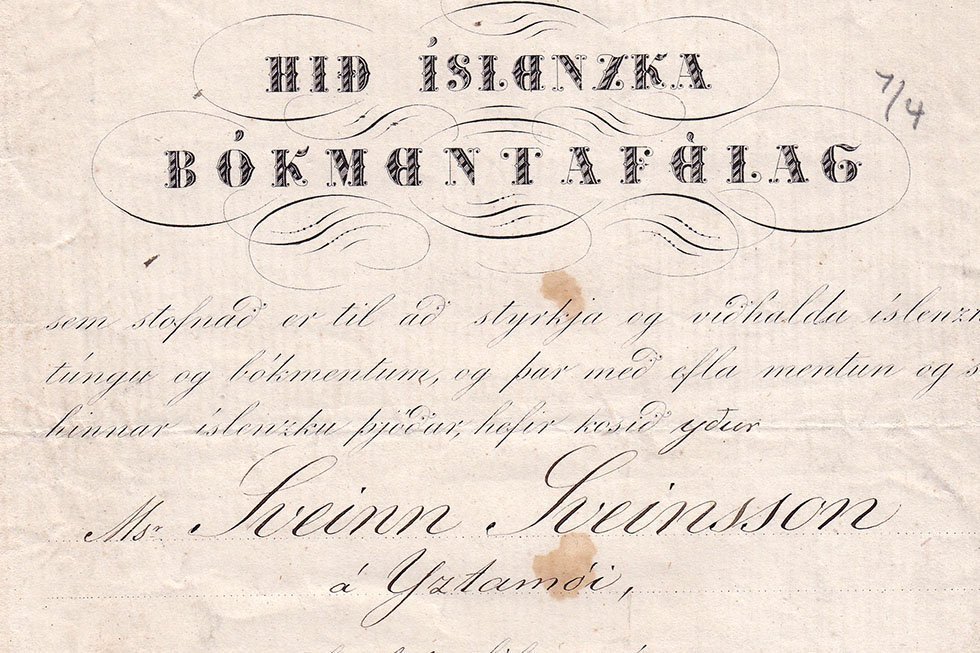 HIÐ ÍSLENZKA
7/4
BÓKMENTAFÈLAG
sem stofnað er til að styrkja og viðhalda íslenzk
túngu og bókmentum, og þar með efla mentun og s
hinnar íslenzku þjóðar, hefir kosið yður
Msr Sveinn Sveinsson
á Yztamói,